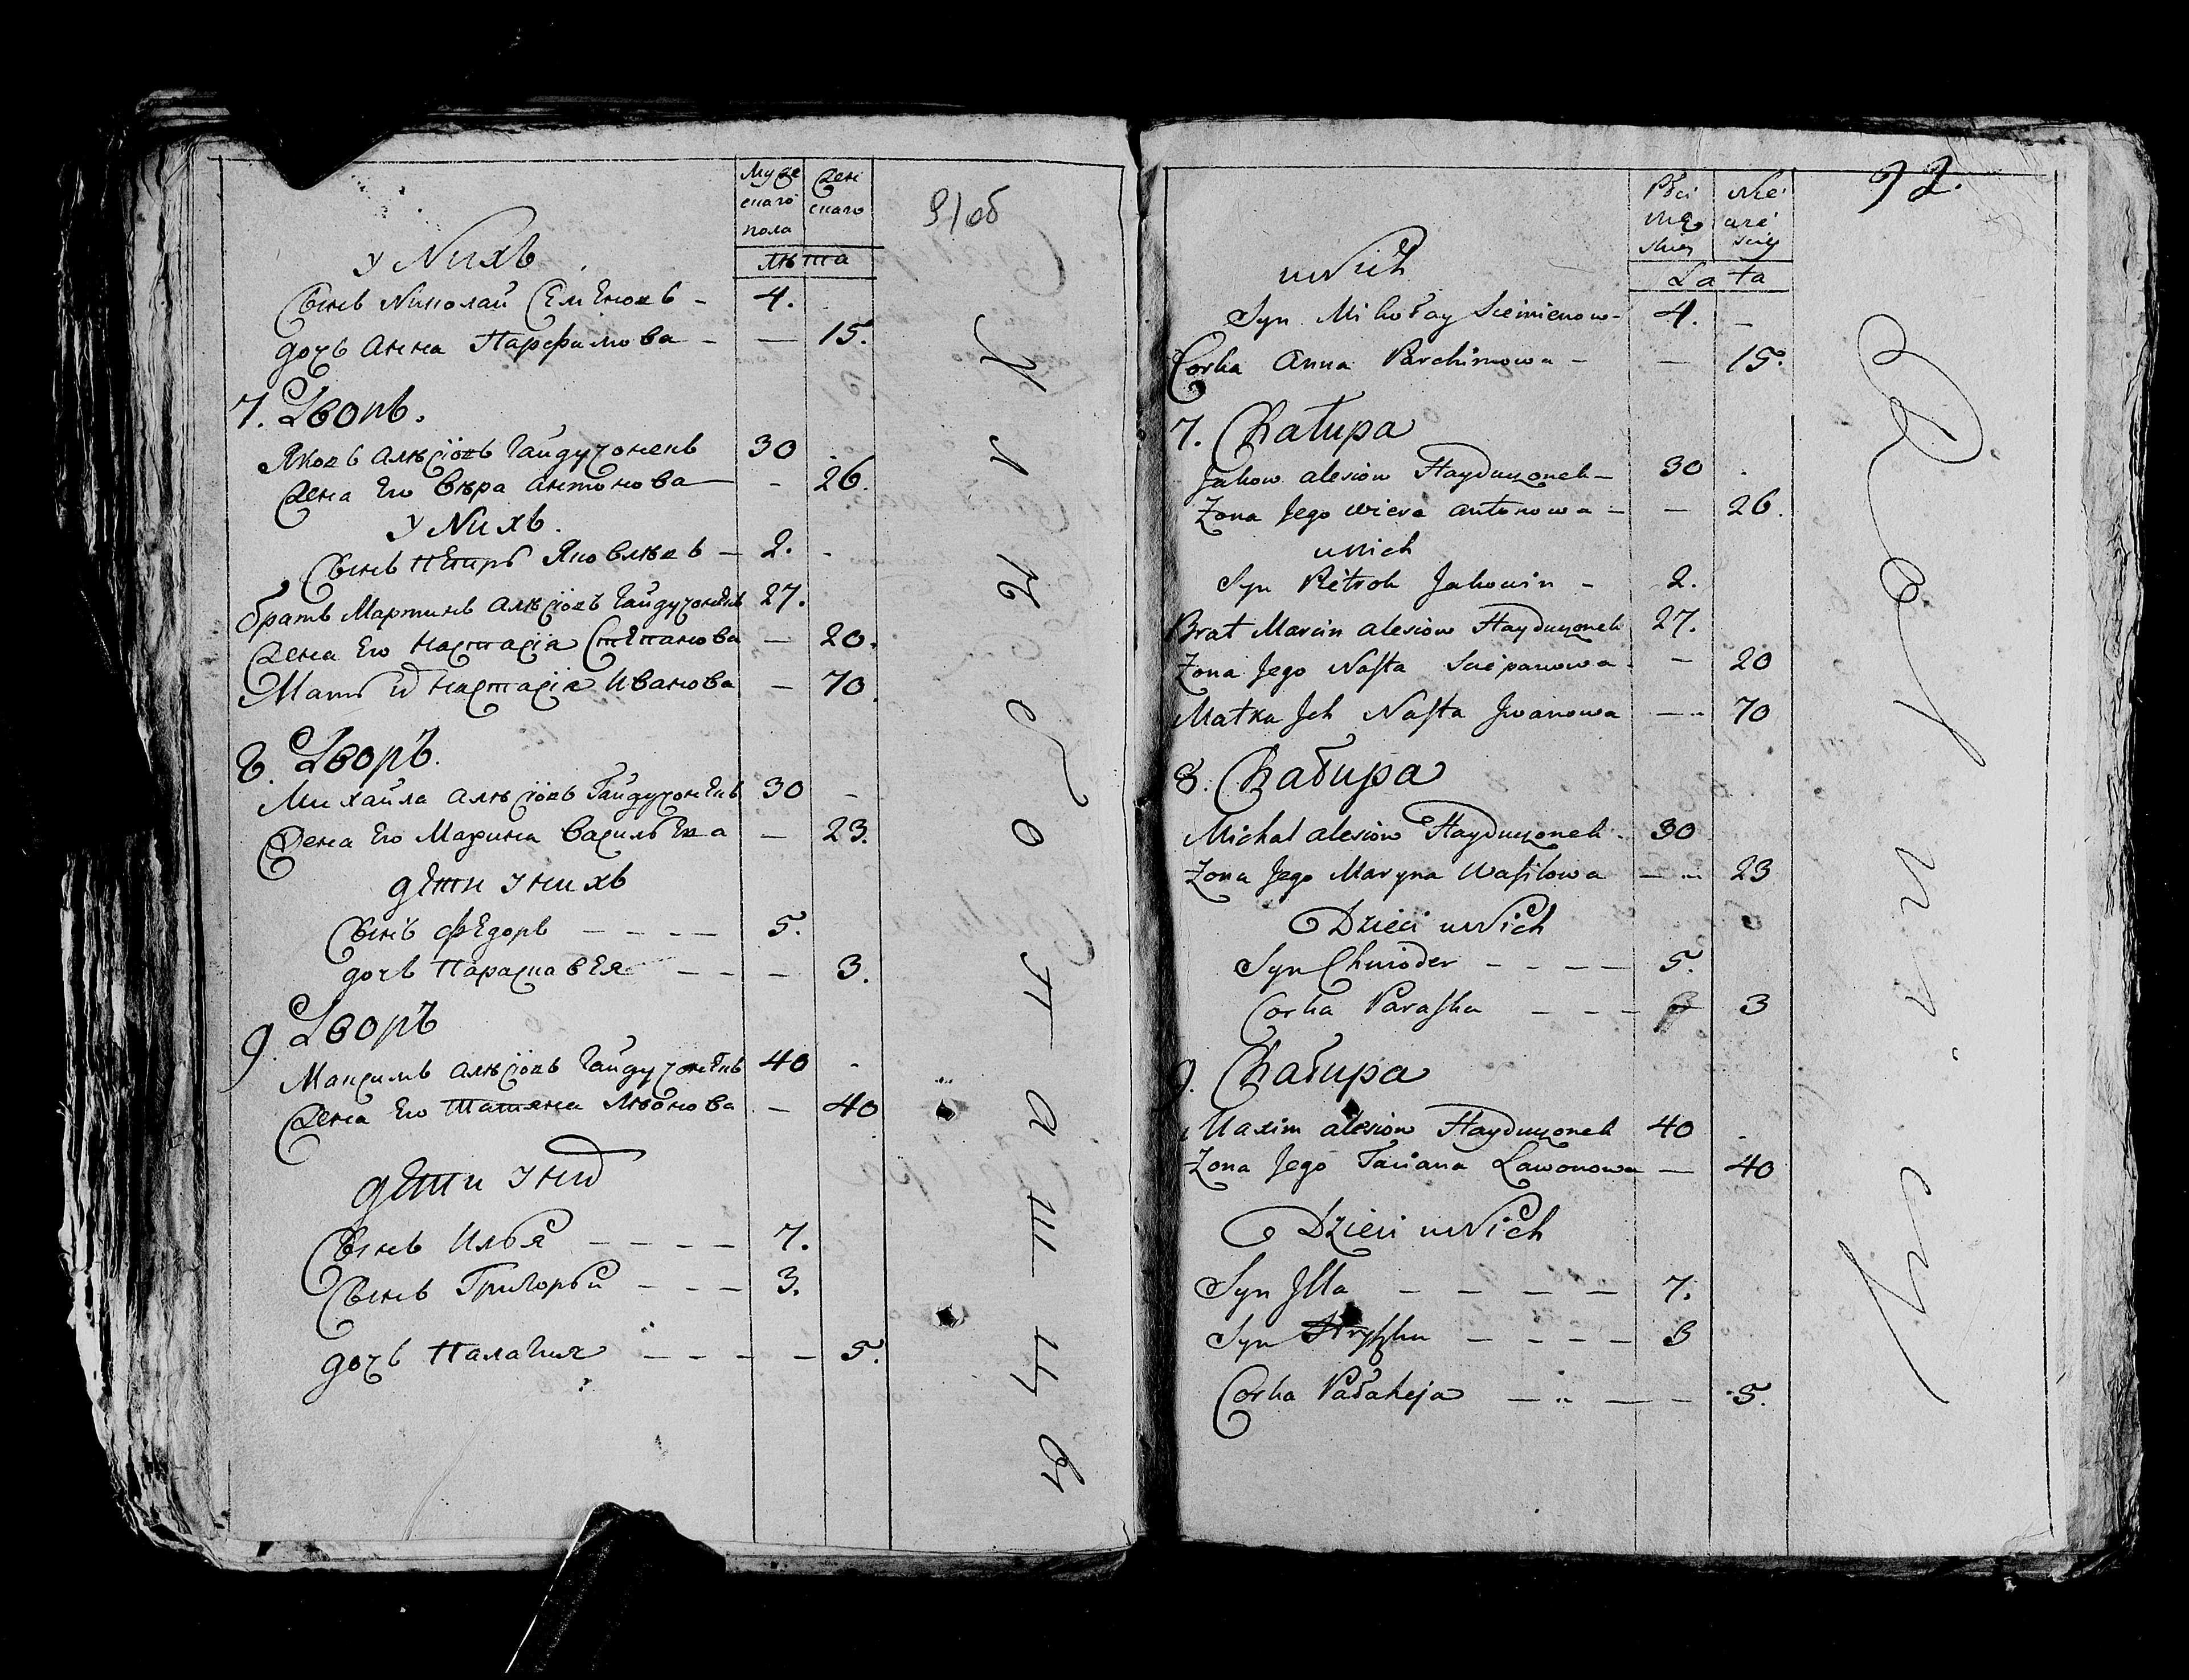 Муже
скаго
пола
Жен
скаго
лѣта
91об
у Нихъ
Сынъ Николай Семеновъ - 4.
дочь Анна Парфимова - — 15.
7. Дворъ.
Яковъ Алѣсіовъ Гайдучонекъ 30
Жена Его Вѣра Антонова — - 26.
у Нихъ.
Сынъ Петръ Яковлѣвъ — 2. -
братъ Мартинъ Алѣсіовъ Гайдучонекъ 27.
Жена Его Настасія Степанова — 20.
Мать их Настасія Иванова — 70
8. Дворъ.
Михайла Алѣсіовъ Гайдучонекъ 30 -
Жена Его Марина Васильева — 23.
дети у нихъ
Сынъ Федоръ — — — — 5.
дочь Парасковея — — — 3.
9. Дворъ
Максимъ Алѣсіовъ Гайдучонекъ 40 -
Жена Его Татяна Лѣвонова — 40
дети у них
Сынъ Илья — — — — 7.
Сынъ Григорьй — — — 3.
дочь Палагия — — — — 5.
92.
Płci
Mę
skiey
Nie
wie
sciey
Lata
u Nich
Syn Mikołay Siemienow - 4. —
Corka Anna Parchimowa - — 15.
7. Chałupa
Jakow Alesiow Hayduczonek — 30 .
Zona Jego Wiera Antonowa — — 26.
u Nich
Syn Pietrok Jakowin - 2.
Brat Marcin Alesiow Hayduczonek 27.
Zona Jego Nasta Sciepanowa - — 20
Matka Ich Nasta Iwanowa — 70
8. Chałupa
Michał Alesiow Hayduczonek - 30
Zona Jego Maryna Wasilowa — 23
Dzieci u Nich
Syn Chwioder — — — — 5.
Corka Paraska — — — 3
9. Chałupa
Maxim Alesiow Hayduczonek 40 -
Zona Jego Taciana Lawonowa — 40
Dzieci u Nich
Syn Illa — — — — 7.
Syn Hryszka — — — — 3
Corka Pałaheja — — — — 5.